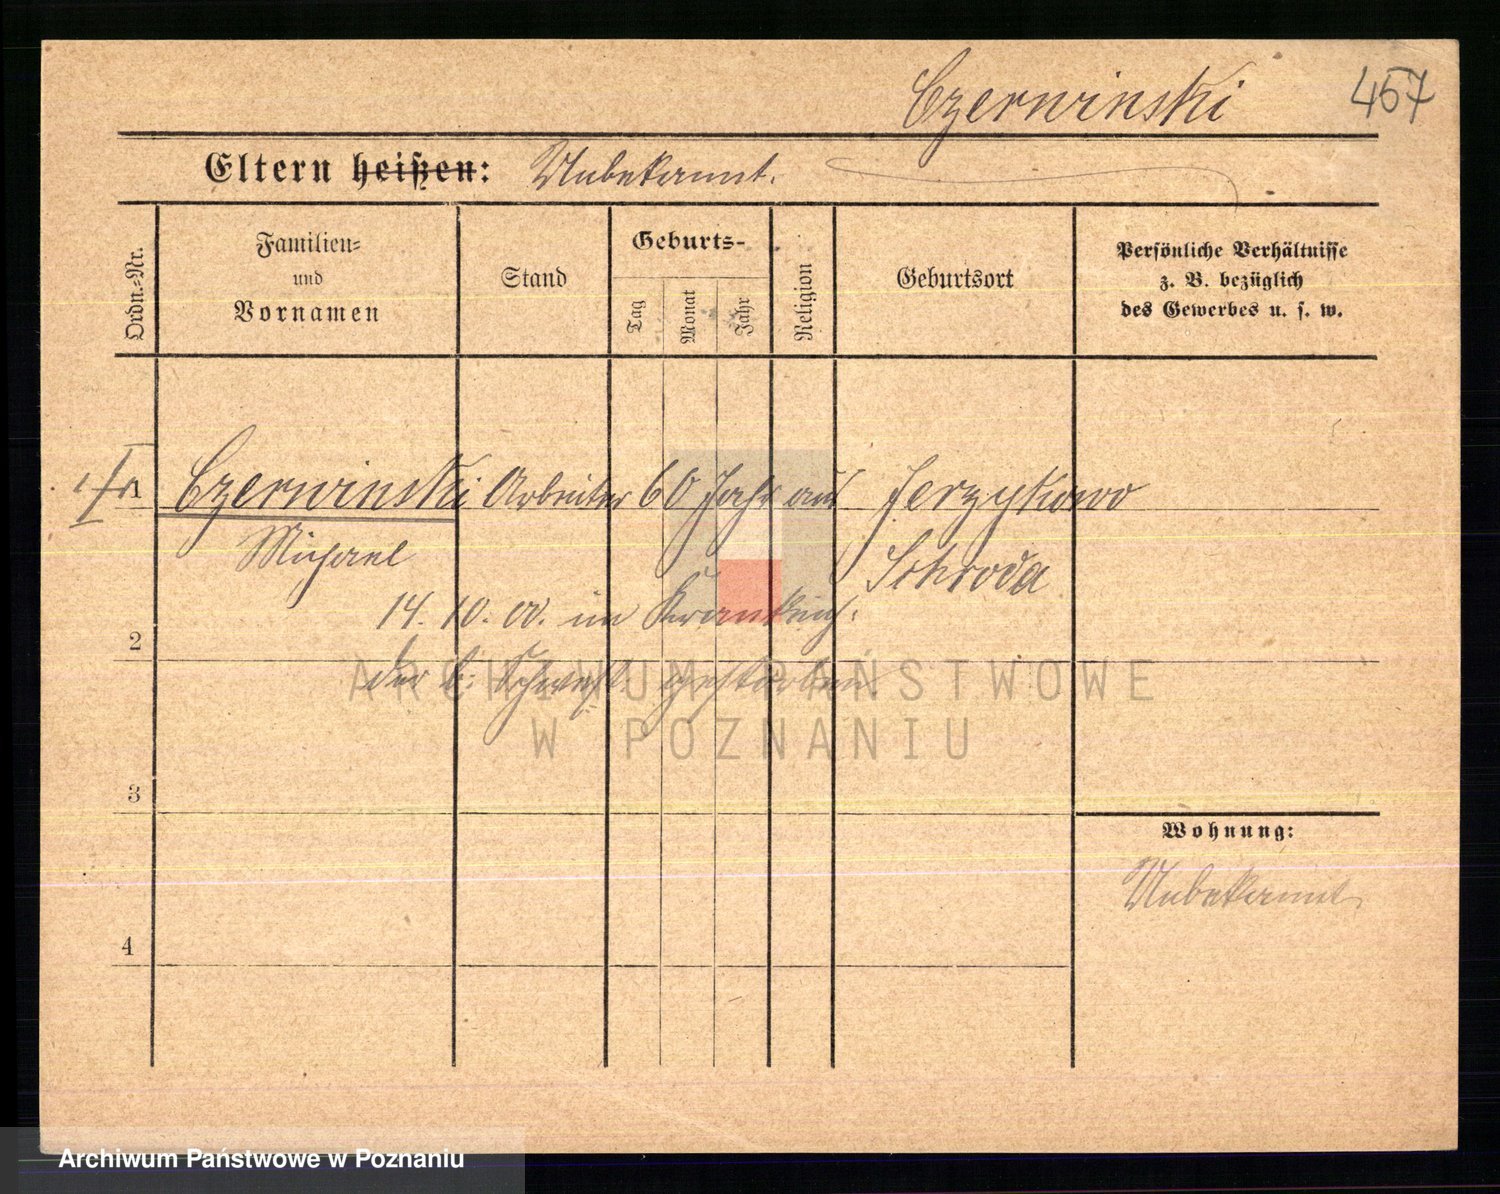 Czerwinski 457
Eltern heißen: Unbekannt.
Ordn.-Nr.
Familien-
und
Vornamen
Stand
Geburts-
Tag
Monat
Jahr
Religion
Geburtsort
Persönliche Verhältnisse
z. B. bezüglich
des Gewerbes u. s. w.
1 Czerwinski Arbeiter 60 Jahr aus Jerzykowo
Michael Schroda
14. 10. 00. im Krankh.
2
der b. Schwest. gestorben
ARCHIWUM PAŃSTWOWE
W POZNANIU
3
Wohnung:
Unbekannt
4
Archiwum Państwowe w Poznaniu